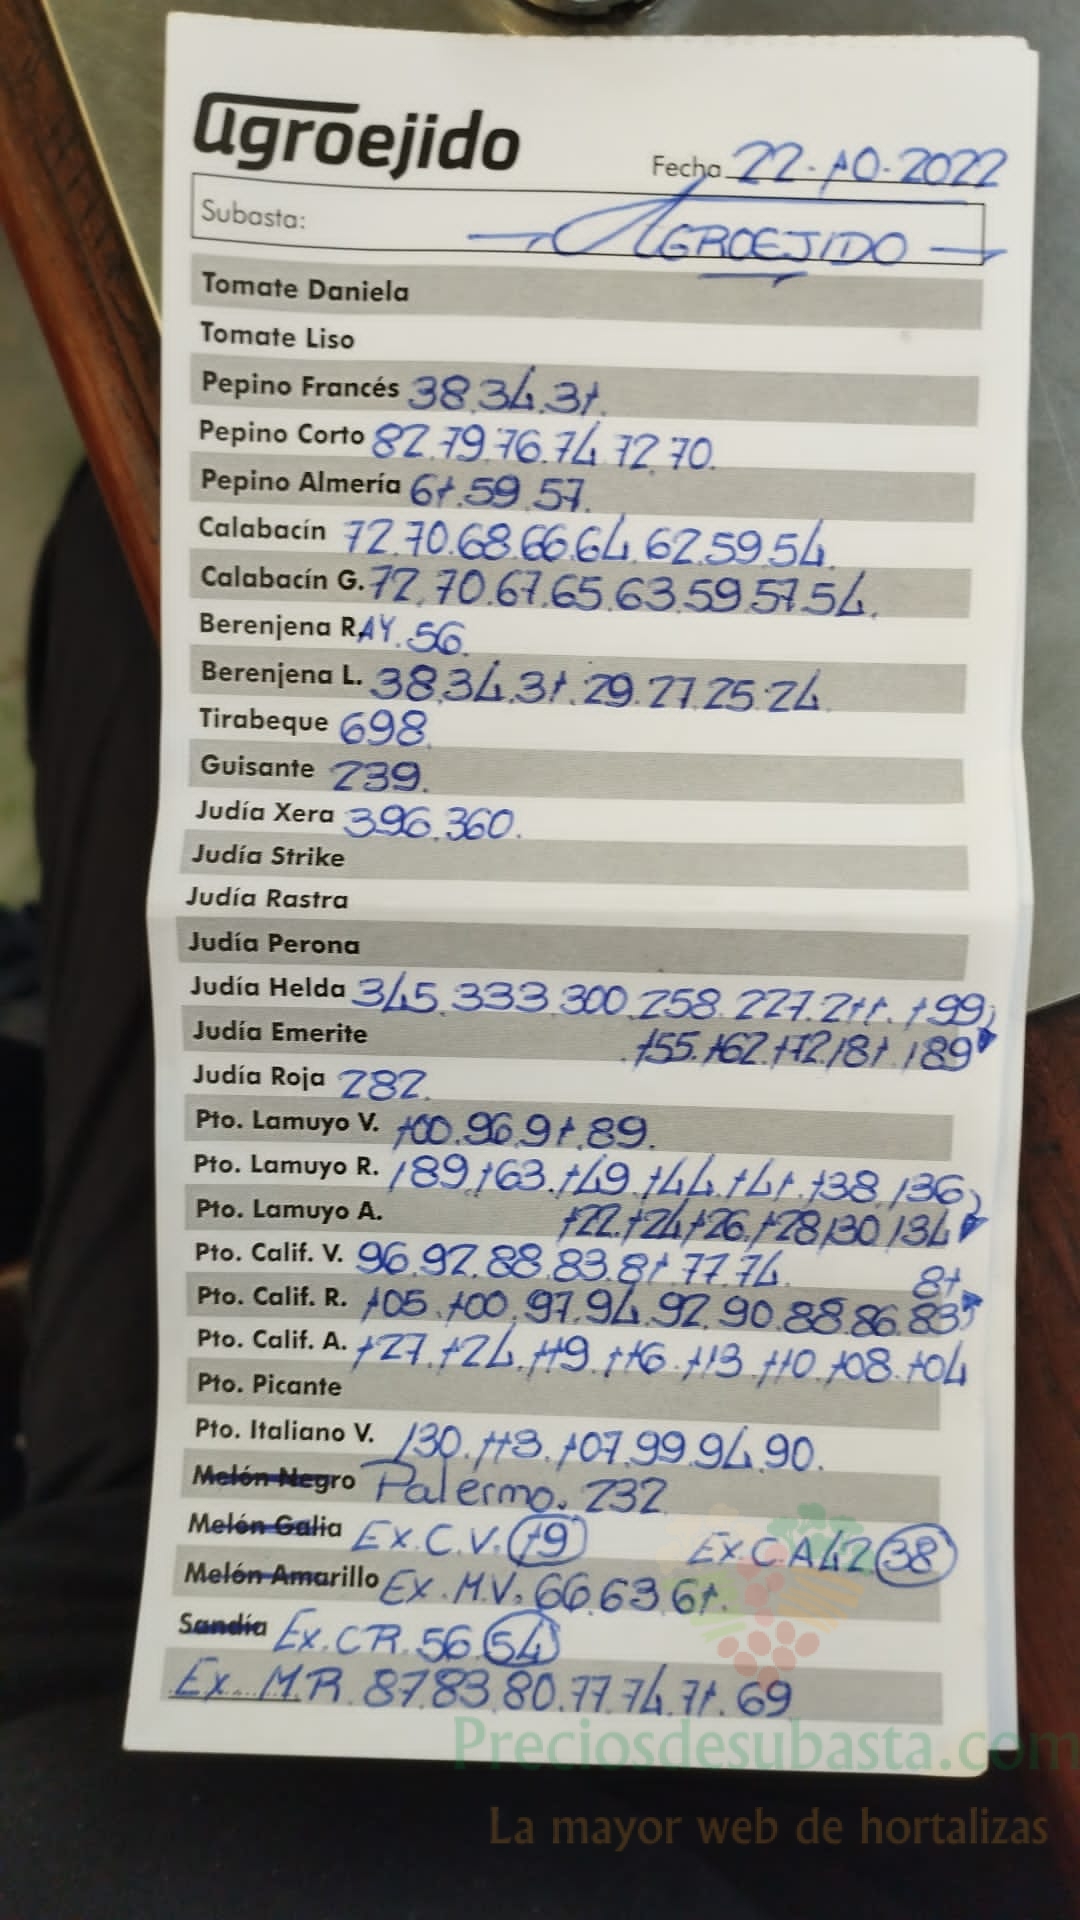 agroejido
Fecha 22-10-2022
Subasta: AGROEJIDO
Tomate Daniela
Tomate Liso
Pepino Francés 38.34.31.
Pepino Corto 82.79.76.74.72.70.
Pepino Almería 61.59.57.
Calabacín 72.70.68.66.64.62.59.54.
Calabacín G. 72.70.67.65.63.59.57.54.
Berenjena R.AY.56.
Berenjena L. 38.34.31.29.27.25.24
Tirabeque 698.
Guisante 239.
Judía Xera 396.360.
Judía Strike
Judía Rastra
Judía Perona
Judía Helda 345.333.300.258.227.211.199
Judía Emerite .155.162.172.181.189
Judía Roja 282.
Pto. Lamuyo V. 100.96.91.89.
Pto. Lamuyo R. 189.163.149.144.141.138.136
Pto. Lamuyo A. 122.124.126.128.130.134
Pto. Calif. V. 96.92.88.83.81.77.74. 81
Pto. Calif. R. 105.100.97.94.92.90.88.86.83
Pto. Calif. A. 127.124.119.116.113.110.108.104
Pto. Picante
Pto. Italiano V. 130.113.107.99.94.90.
Melón Negro Palermo. 232
Melón Galia Ex.C.V. 19 Ex.C.A 42 38
Melón Amarillo Ex.M.V. 66.63.61.
Sandía Ex.C R. 56.54
Ex.M.R. 87.83.80.77.74.71.69
Preciosdesubasta.com
La mayor web de hortalizas